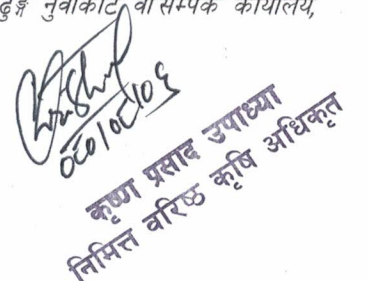 नुवाकोट वा सम्पर्क कार्यालय,
०८०/०८/०६
कृष्ण प्रसाद उपाध्या
निमित्त वरिष्ठ कृषि अधिकृत